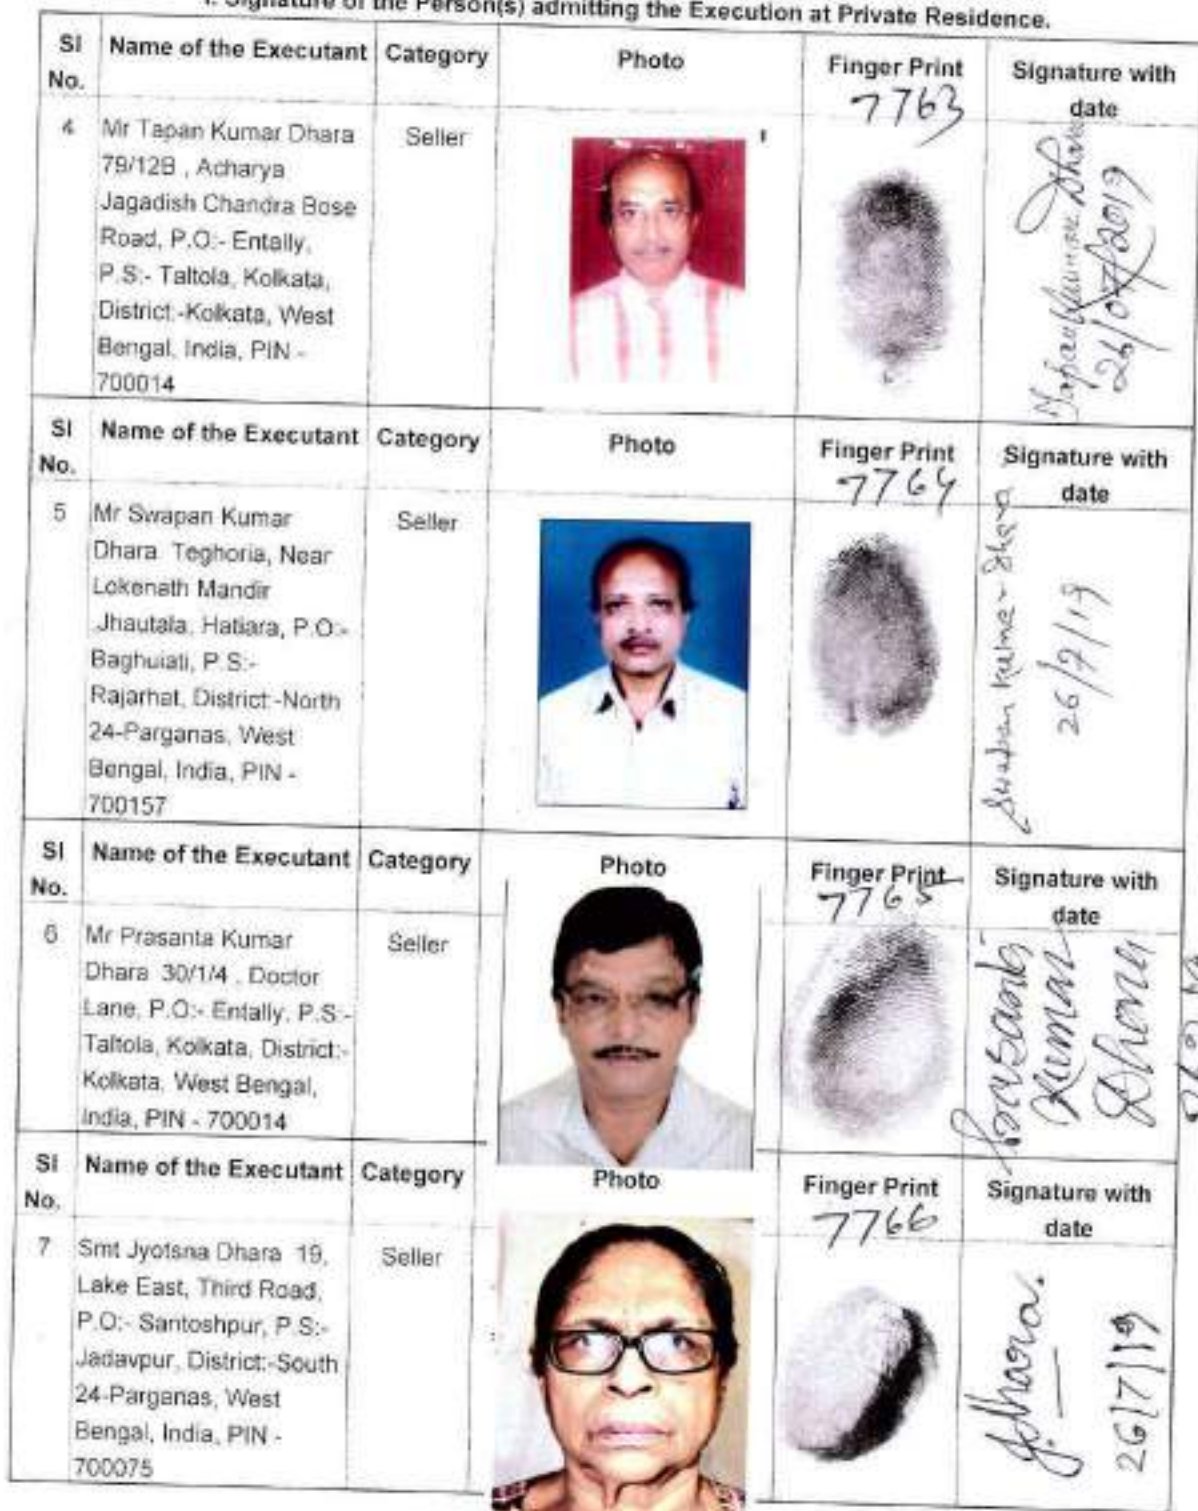 I. Signature of the Person(s) admitting the Execution at Private Residence.
Sl No. Name of the Executant Category Photo Finger Print Signature with date
7763
4 Mr Tapan Kumar Dhara Seller
79/12B , Acharya
Jagadish Chandra Bose
Road, P.O:- Entally,
P.S:- Taltola, Kolkata,
District:-Kolkata, West
Bengal, India, PIN -
700014
Tapan Kumar Dhara
26/07/2019
Sl No. Name of the Executant Category Photo Finger Print Signature with date
7764
5 Mr Swapan Kumar Seller
Dhara Teghoria, Near
Lokenath Mandir
Jhautala, Hatiara, P.O:-
Baghuiati, P.S:-
Rajarhat, District:-North
24-Parganas, West
Bengal, India, PIN -
700157
Swapan Kumar Dhara
26/7/19
Sl No. Name of the Executant Category Photo Finger Print Signature with date
7765
6 Mr Prasanta Kumar Seller
Dhara 30/1/4 , Doctor
Lane, P.O:- Entally, P.S:-
Taltola, Kolkata, District:-
Kolkata, West Bengal,
India, PIN - 700014
Prasanta
Kumar
Dhara
Sl No. Name of the Executant Category Photo Finger Print Signature with date
7766
7 Smt Jyotsna Dhara 19, Seller
Lake East, Third Road,
P.O:- Santoshpur, P.S:-
Jadavpur, District:-South
24-Parganas, West
Bengal, India, PIN -
700075
J. Dhara.
26/7/19